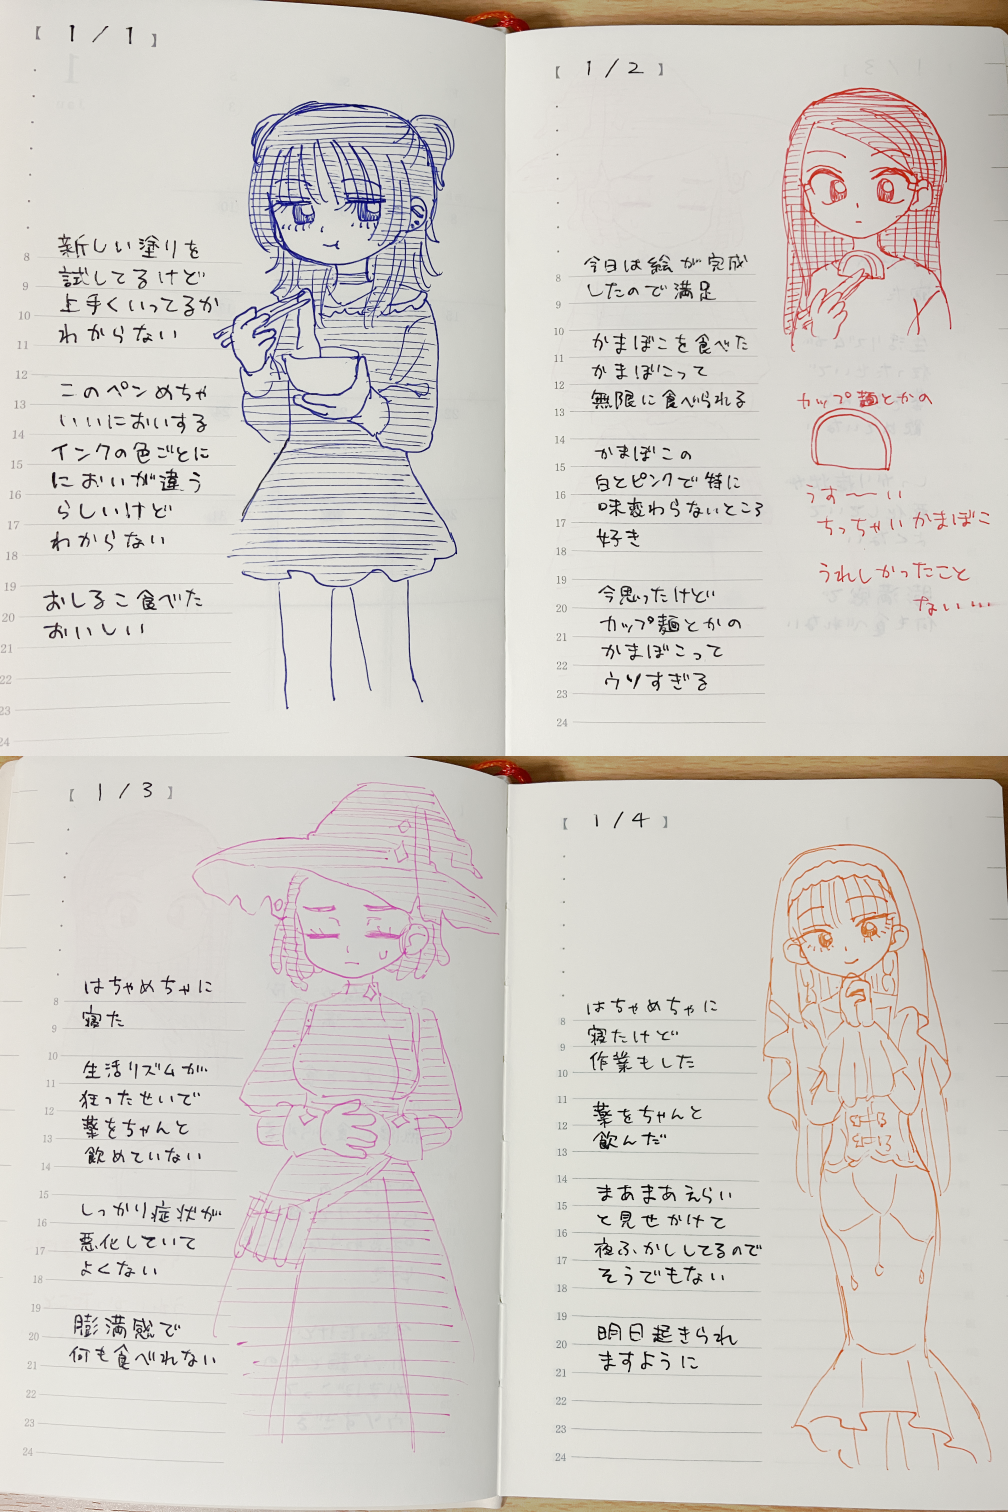 【 1 / 1 】
新しい塗りを
試してるけど
上手くいってるか
わからない
このペンめちゃ
いいにおいする
インクの色ごとに
においが違う
らしいけど
わからない
おしるこ食べた
おいしい
8
9
10
11
12
13
14
15
16
17
18
19
20
21
22
23
24
【 1 / 2 】
今日は絵が完成
したので満足
かまぼこを食べた
かまぼこって
無限に食べられる
かまぼこの
白とピンクで特に
味変わらないところ
好き
今思ったけど
カップ麺とかの
かまぼこって
ウソすぎる
カップ麺とかの
うす〜い
ちっちゃいかまぼこ
うれしかったこと
ない…
8
9
10
11
12
13
14
15
16
17
18
19
20
21
22
23
24
【 1 / 3 】
はちゃめちゃに
寝た
生活リズムが
狂ったせいで
薬をちゃんと
飲めていない
しっかり症状が
悪化していて
よくない
膨満感で
何も食べれない
8
9
10
11
12
13
14
15
16
17
18
19
20
21
22
23
24
【 1 / 4 】
はちゃめちゃに
寝たけど
作業もした
薬をちゃんと
飲んだ
まあまあえらい
と見せかけて
夜ふかししてるので
そうでもない
明日起きられ
ますように
8
9
10
11
12
13
14
15
16
17
18
19
20
21
22
23
24